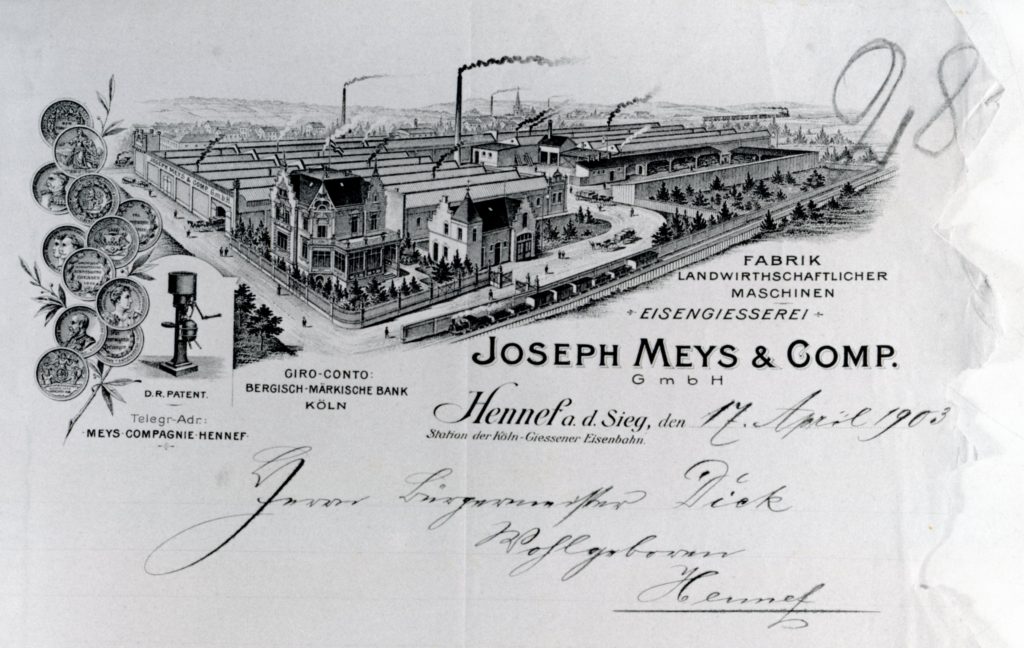 9,8
MEYS & COMP. GmbH
FABRIK
LANDWIRTHSCHAFTLICHER
MASCHINEN
EISENGIESSEREI
JOSEPH MEYS & COMP.
GmbH
D.R. PATENT.
Telegr-Adr.:
MEYS-COMPAGNIE-HENNEF.
GIRO-CONTO:
BERGISCH-MÄRKISCHE BANK
KÖLN
Hennef a. d. Sieg, den 17. April 1903
Station der Köln-Giessener Eisenbahn.
Herrn Bürgermeister Dick
Wohlgeboren
Hennef